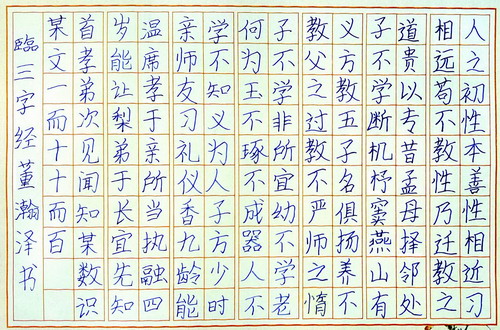 人之初性本善性相近习
相远苟不教性乃迁教之
道贵以专昔孟母择邻处
子不学断机杼窦燕山有
义方教五子名俱扬养不
教父之过教不严师之惰
子不学非所宜幼不学老
何为玉不琢不成器人不
学不知义为人子方少时
亲师友习礼仪香九龄能
温席孝于亲所当执融四
岁能让梨弟于长宜先知
首孝弟次见闻知某数识
某文一而十十而百
臨三字经董瀚泽书